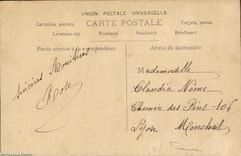 UNION POSTALE UNIVERSELLE
CARTE POSTALE
Cartolina postale
Tarjeta postal
Levelezo-lap
Postkarte
Postcard
Briefkaart
Partie réservée à la correspondance
Adresse du destinataire
Sincères Amitiés
Mademoiselle
Claudia Nême
Chemin des Pins 106
Lyon Monchat